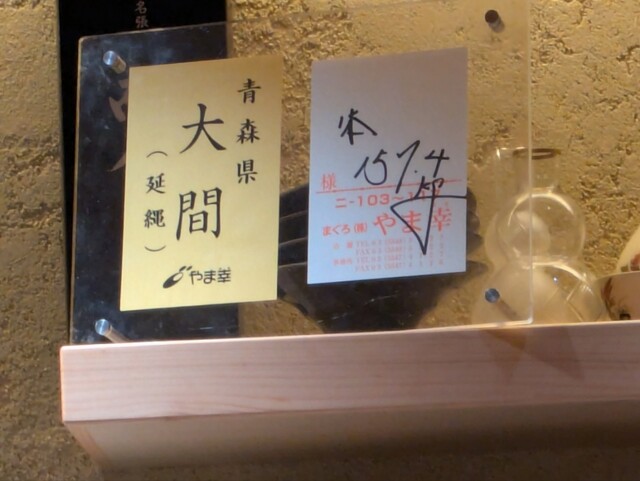 名張
青森県
大間
（延縄）
やま幸
本
157.4
様
ニ-103~
まぐろ(株) やま幸